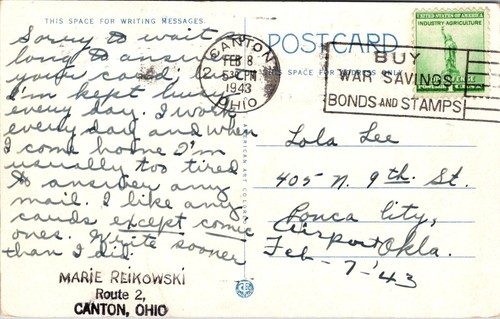 THIS SPACE FOR WRITING MESSAGES.
Sorry to wait so
long to answer
your card, but
I'm kept busy
every day. I work
every day and when
I come home I'm
usually too tired
to answer any
mail. I like any
cards except comic
ones. Write sooner
than I did.
MARIE REIKOWSKI
Route 2,
CANTON, OHIO
CANTON
FEB 8
5 30 PM
1943
OHIO
POSTCARD
THIS SPACE FOR ADDRESS ONLY
BUY
WAR SAVINGS
BONDS AND STAMPS
UNITED STATES OF AMERICA
INDUSTRY AGRICULTURE
Lola Lee
405 N. 9th. St.
Ponca City,
Okla.
Feb-7-'43